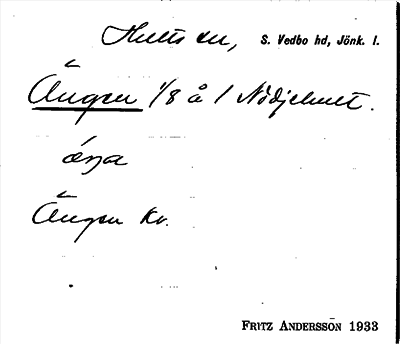 Hults sn, S. Vedbo hd, Jönk. l.
Ängen 1/8 å 1 Nödjehult.
Ängen kv.
FRITZ ANDERSSON 1933